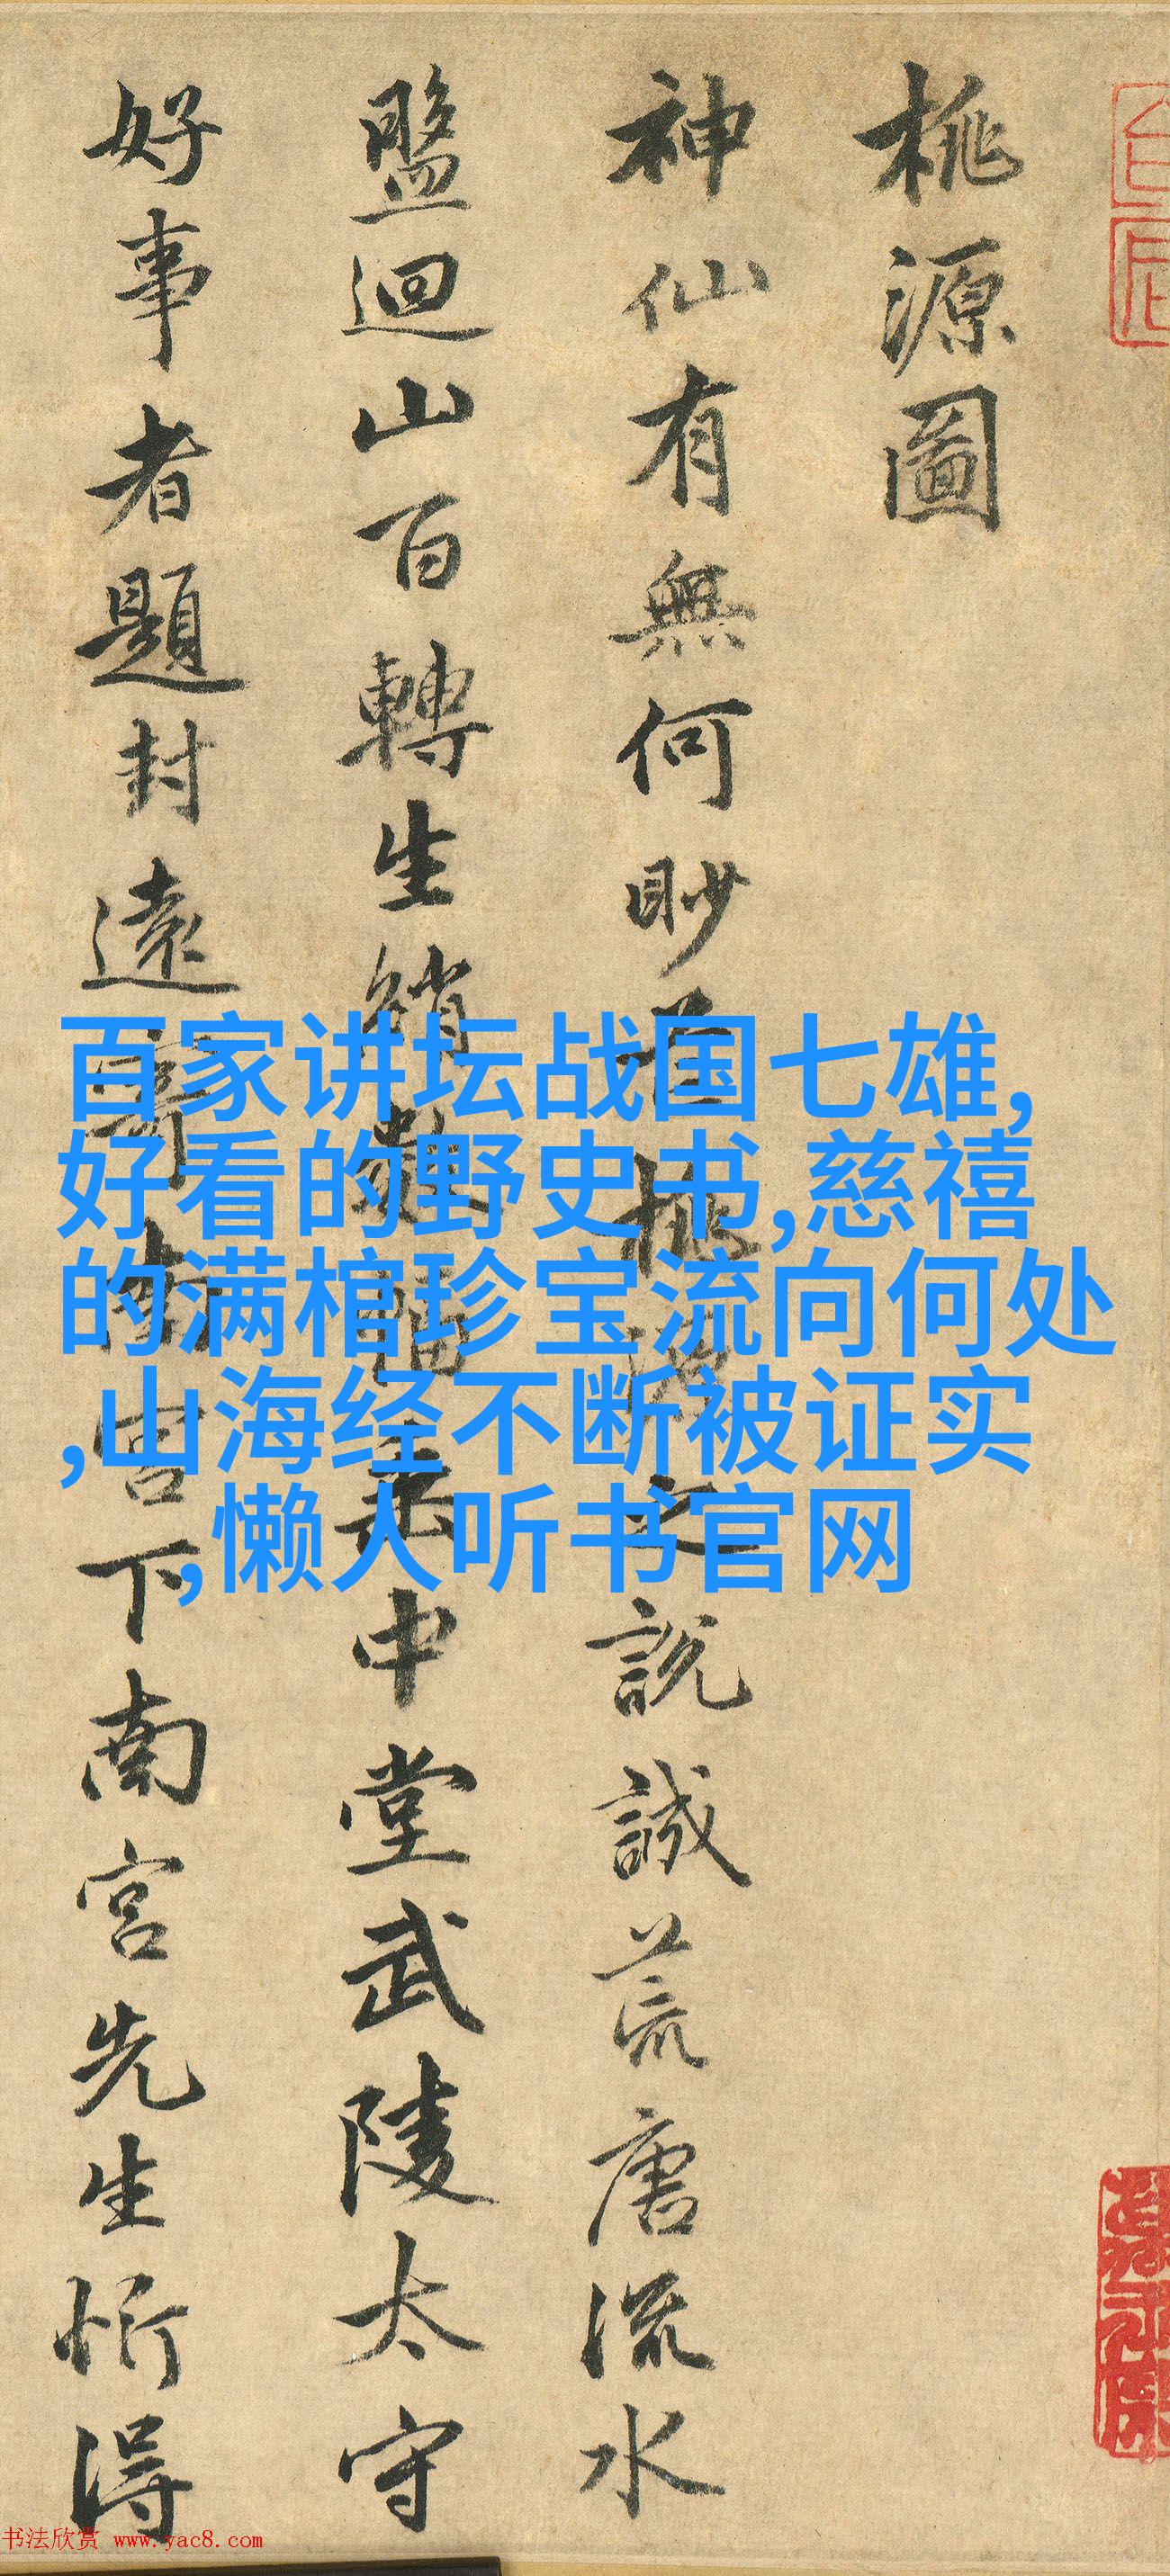 桃源圖
神仙有無何眇芒桃源之說誠荒唐流水
盤迴山百轉生綃數幅垂中堂武陵太守
好事者題封遠寄南宮下南宮先生忻得
百家讲坛战国七雄,
好看的野史书,慈禧
的满棺珍宝流向何处
,山海经不断被证实
,懒人听书官网
书法欣赏 www.yac8.com